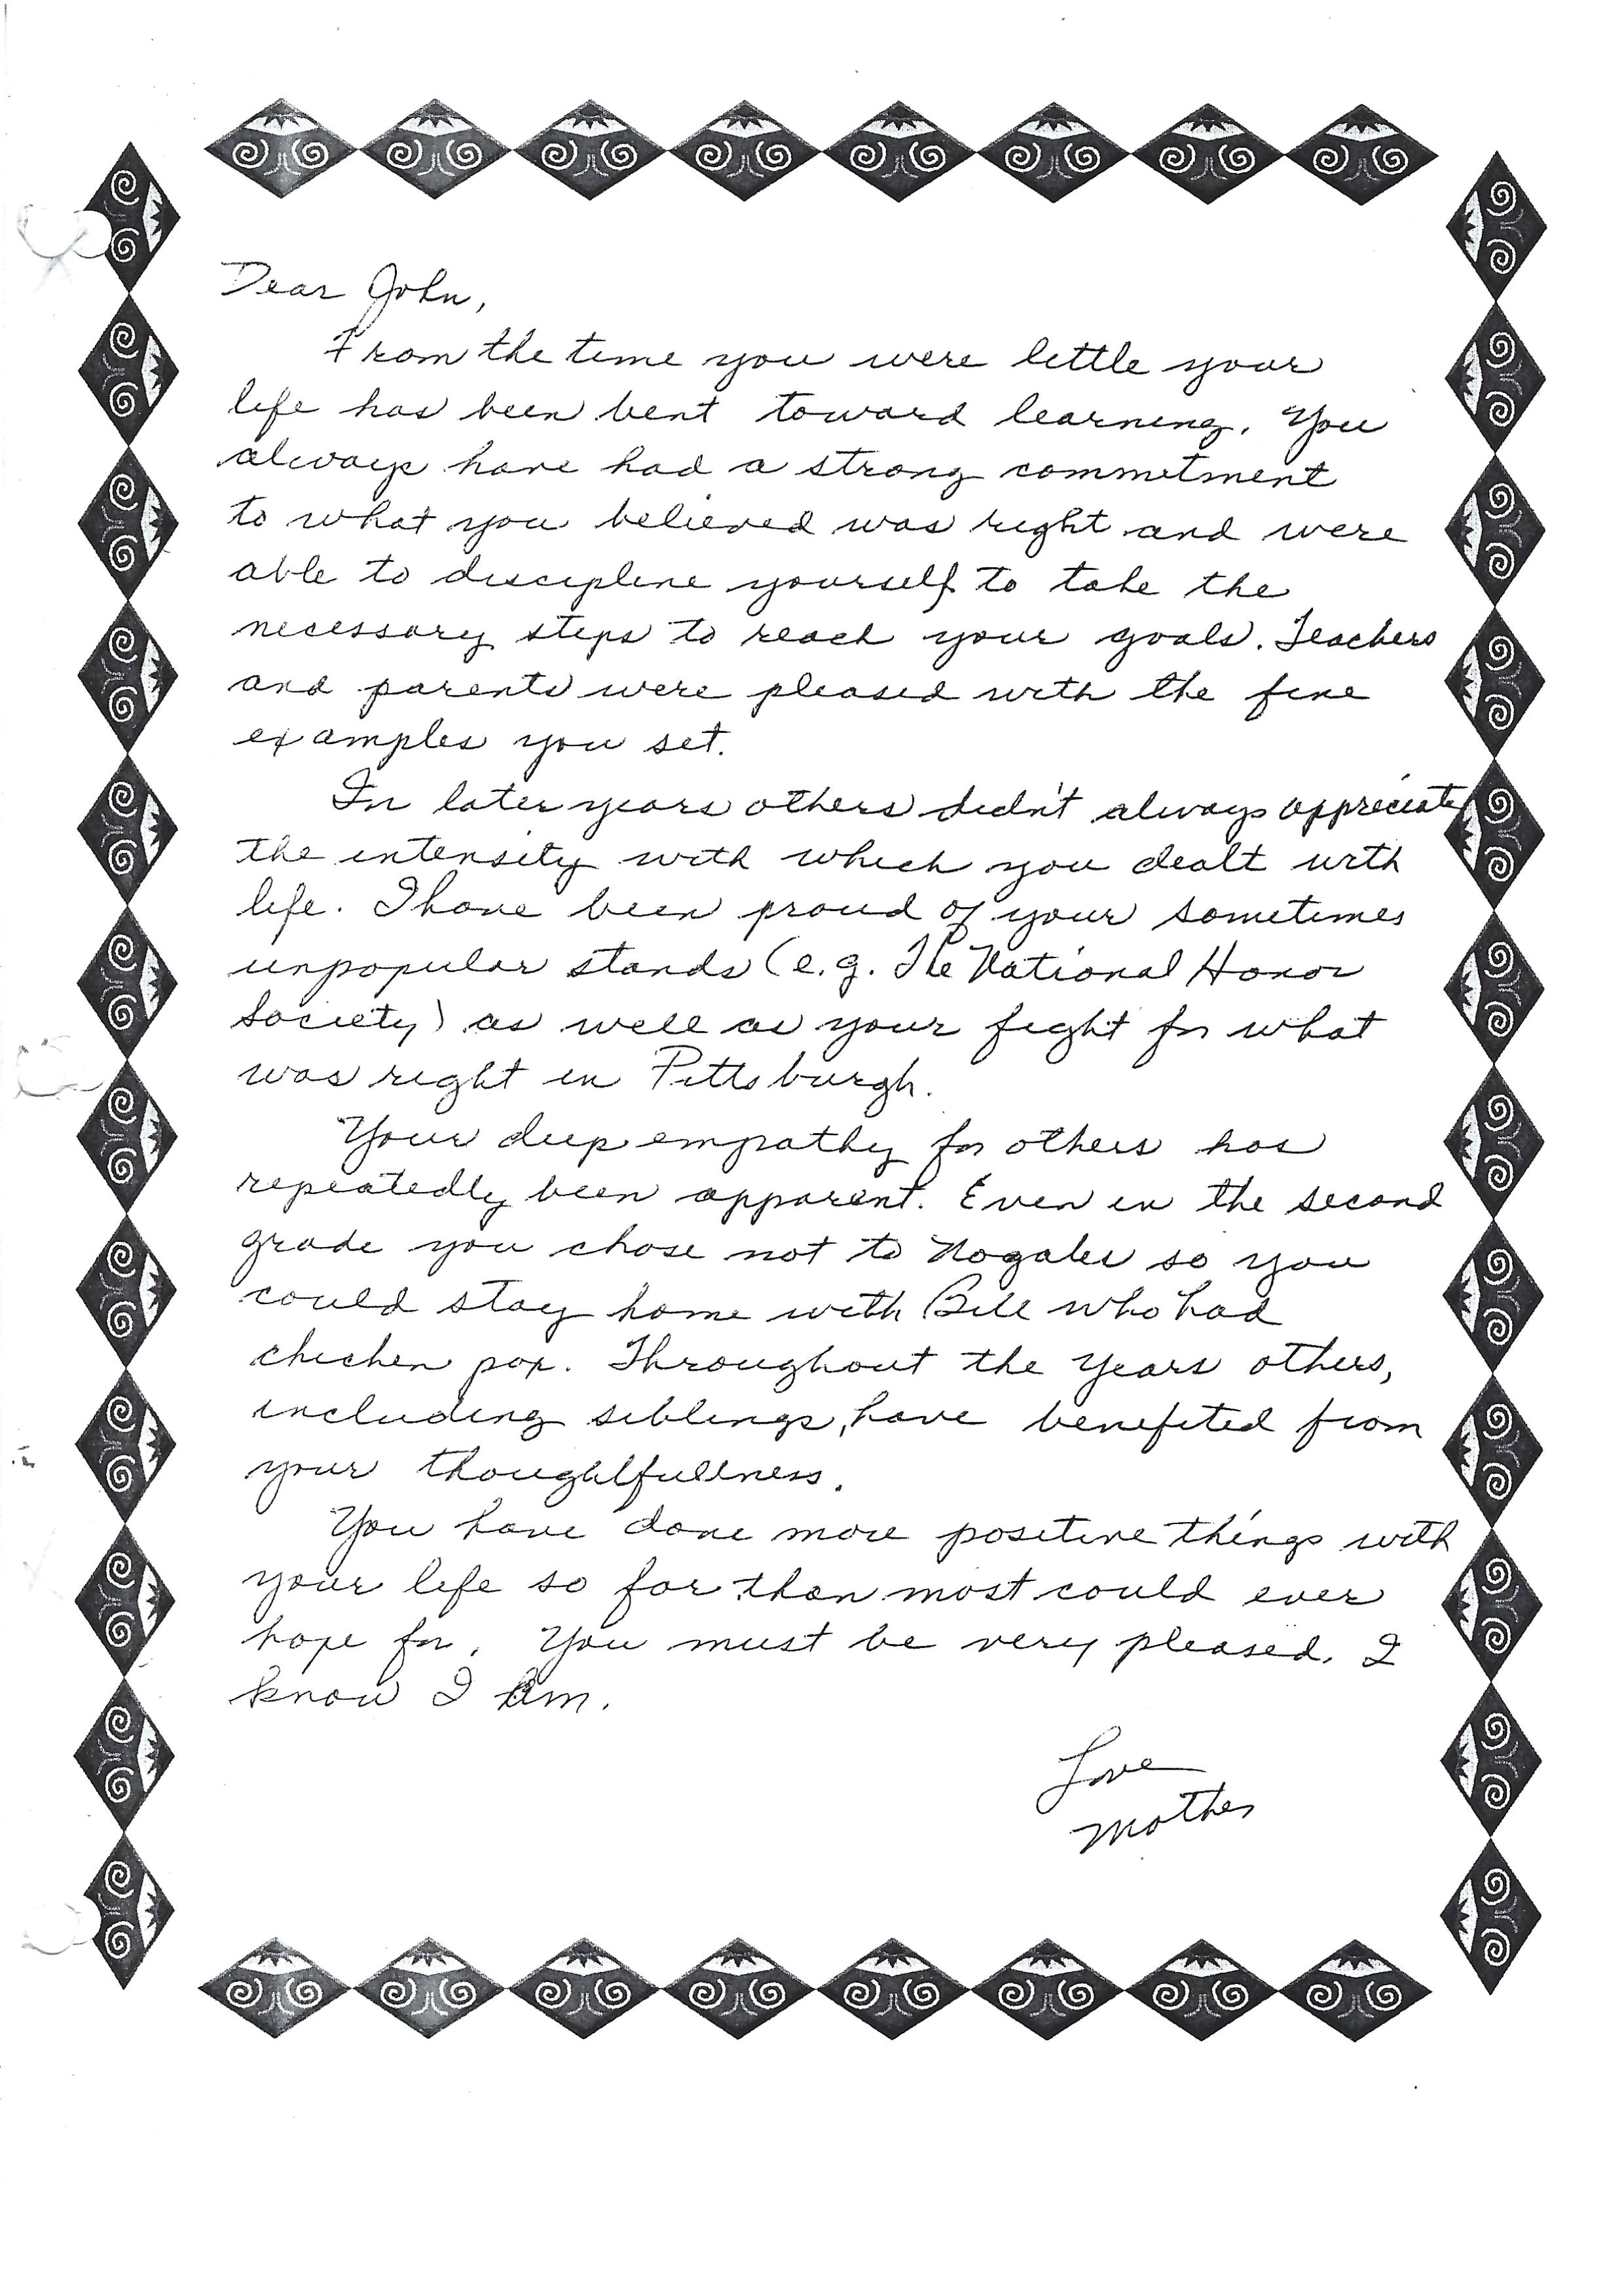 Dear John,
From the time you were little your
life has been bent toward learning. You
always have had a strong commitment
to what you believed was right and were
able to discipline yourself to take the
necessary steps to reach your goals. Teachers
and parents were pleased with the fine
examples you set.
In later years others didn't always appreciate
the intensity with which you dealt with
life. I have been proud of your sometimes
unpopular stands (e.g. The National Honor
Society) as well as your fight for what
was right in Pittsburgh.
Your deep empathy for others has
repeatedly been apparent. Even in the second
grade you chose not to Nogales so you
could stay home with Bill who had
chicken pox. Throughout the years others,
including siblings, have benefited from
your thoughtfullness.
You have done more positive things with
your life so far than most could ever
hope for. You must be very pleased. I
know I am.
Love
Mother